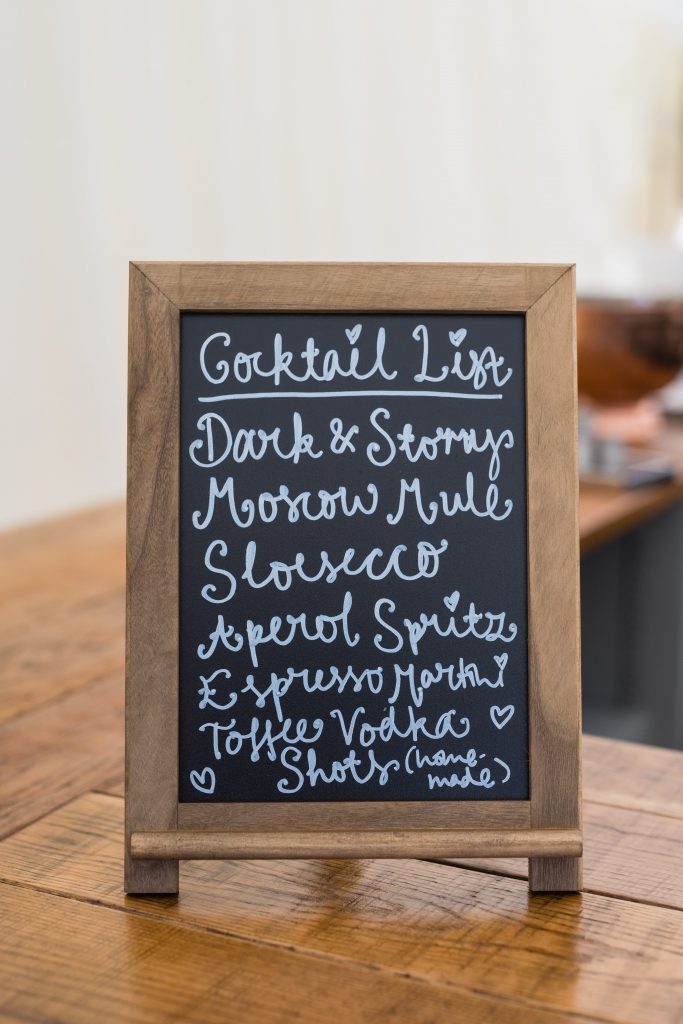 Cocktail List
Dark & Stormy
Moscow Mule
Sloesecco
Aperol Spritz
Espresso Martini
Toffee Vodka
Shots (home-
made)